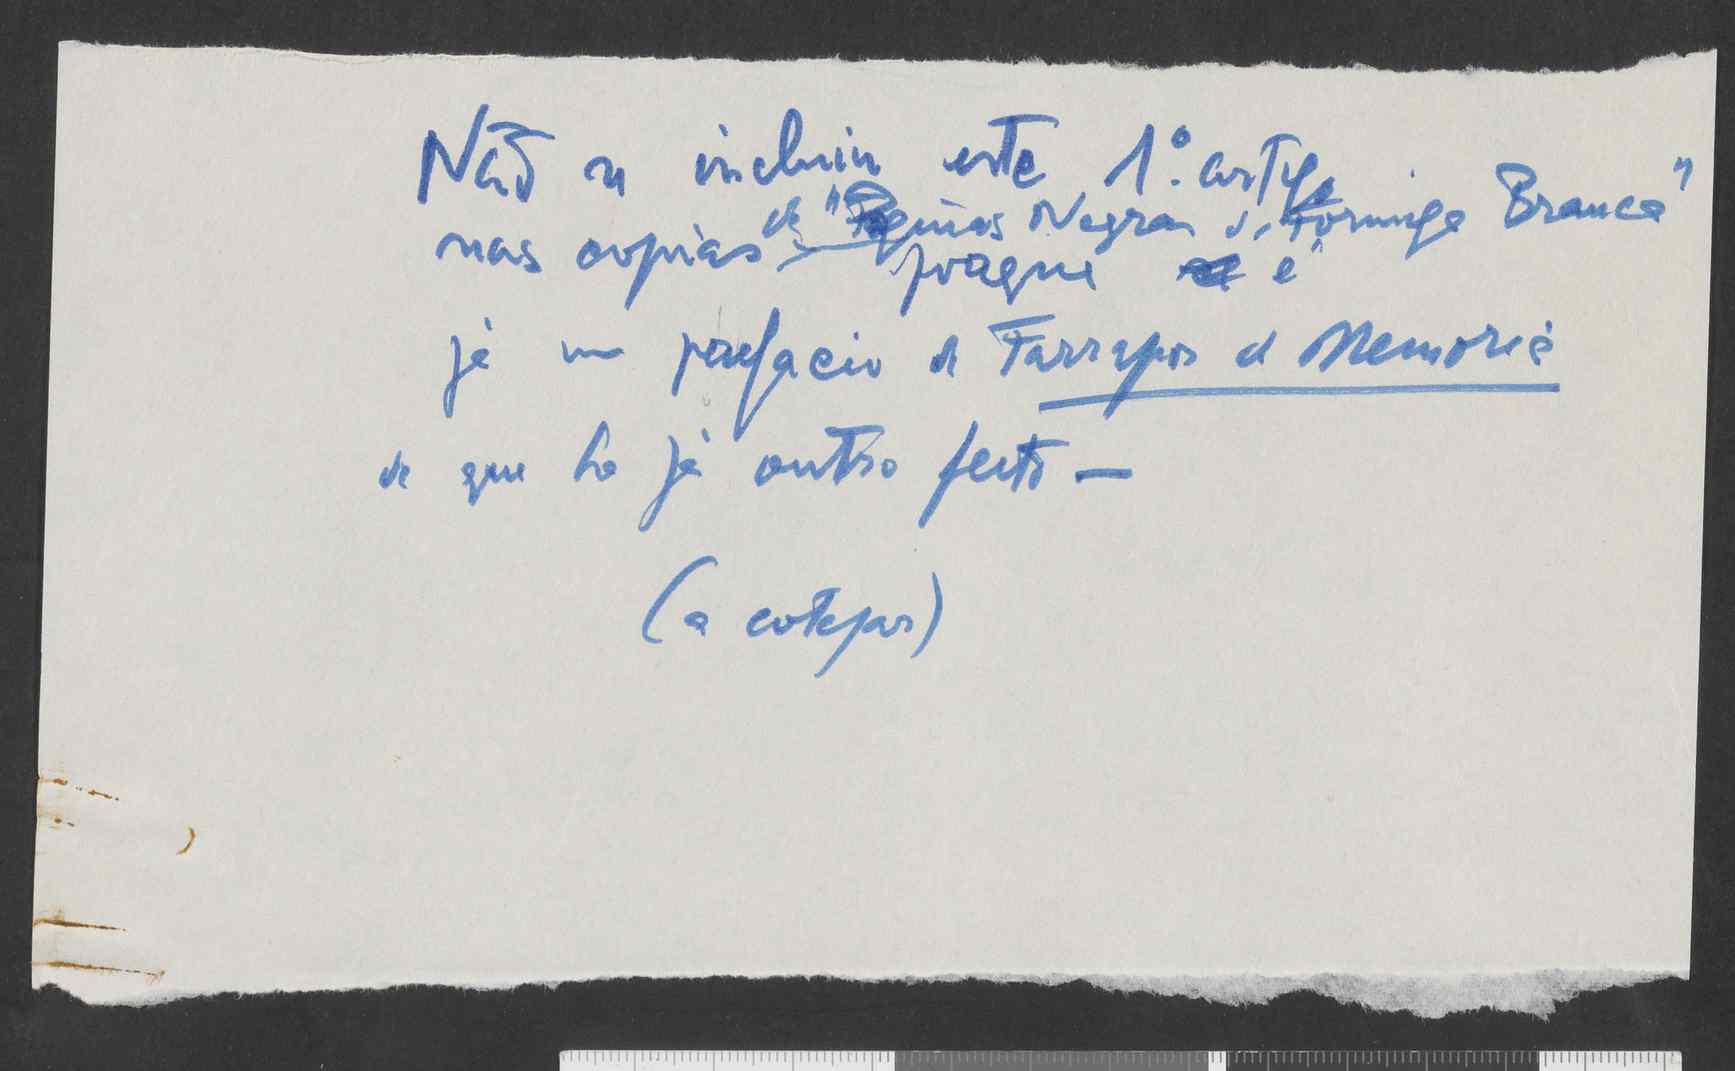 Não se incluiu este 1º. artigo
nas copias de "Páginas Negras da Formiga Branca"
porque é
já um prefacio de Farrapos de Memoria
de que ha já outro feito —
(a cotejar)